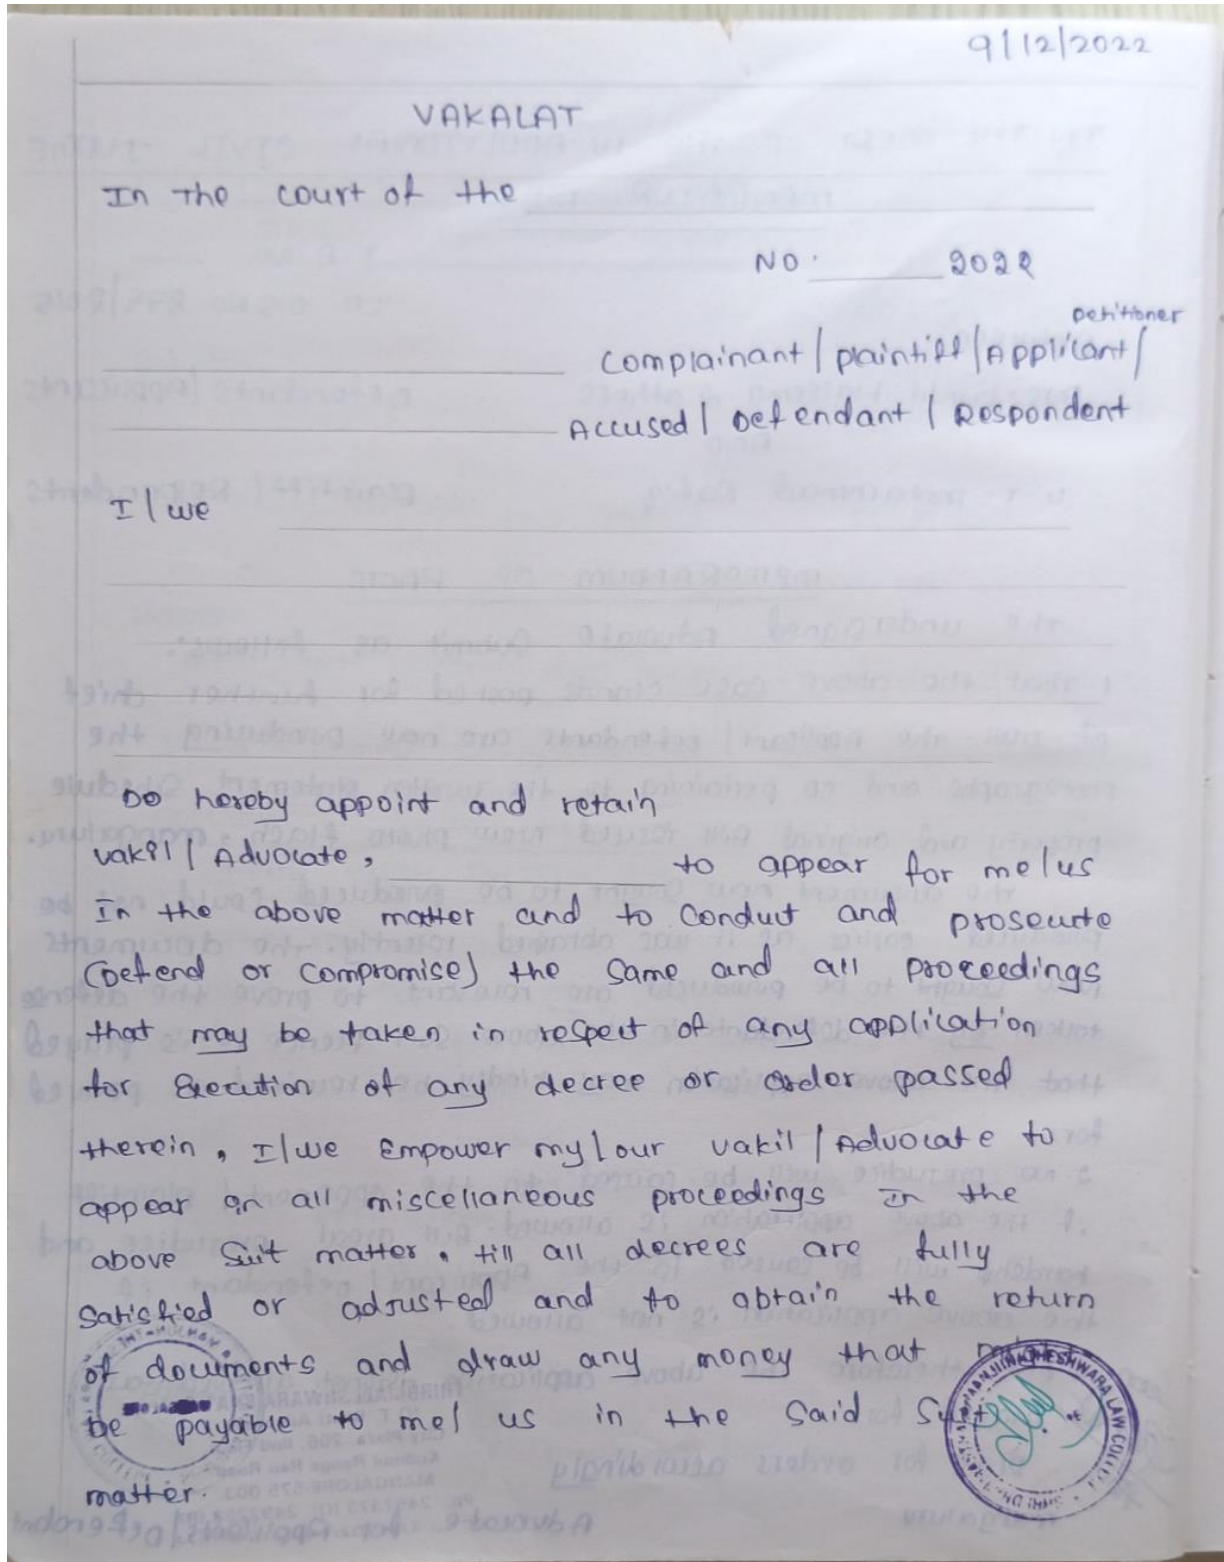 9/12/2022
VAKALAT
In The court of the
NO. 2022
petitioner
Complainant / plaintiff / Applicant /
Accused / Defendant / Respondent
I / we
Do hereby appoint and retain
vakil / Advocate, to appear for me/us
In the above matter and to Conduct and prosecute
(Defend or Compromise) the Same and all proceedings
that may be taken in respect of any application
for Execution of any decree or order passed
therein, I/we Empower my/our vakil / Advocate to
appear in all miscellaneous proceedings In the
above Suit matter, till all decrees are fully
Satisfied or adjusted and to obtain the return
of documents and draw any money that
be payable to me/ us in the Said Suit
matter.
LAW COLLEGE